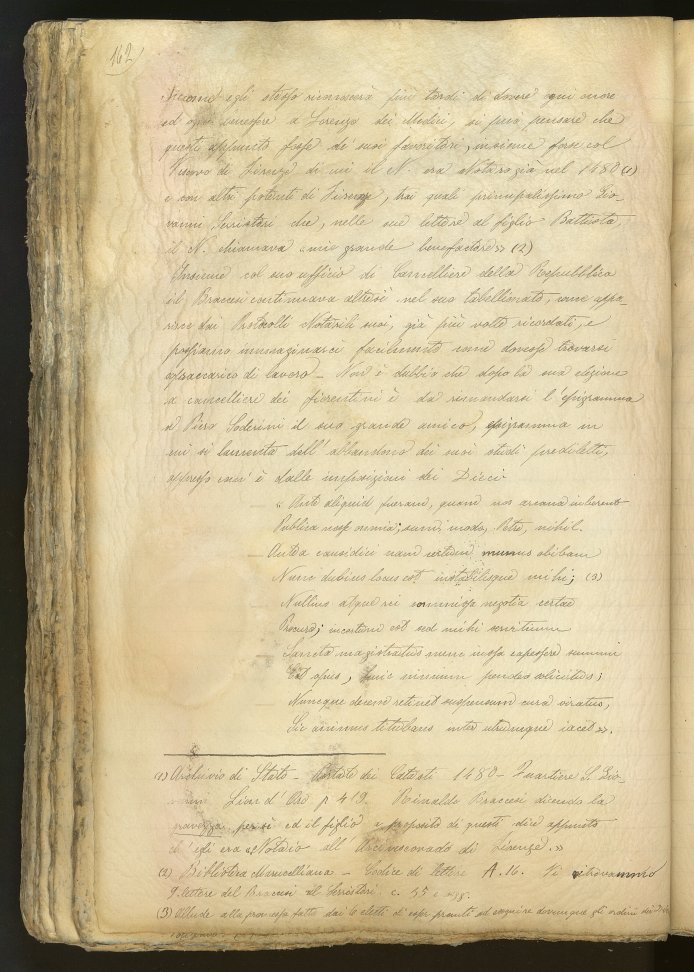 162
Siccome egli stesso riconoscerà più tardi di dovere ogni onore
ed ogni benessere a Lorenzo dei Medici, si può pensare che
questi appunto fosse de' suoi favoritori, insieme forse col
di Firenze di cui il N. era Notaro già nel 1480 (1)
e con altri potenti di Firenze, tra i quali principalissimo Gio-
vanni Serristori che, nelle sue lettere al figlio Battista,
il N. chiamava «mio grande benefactore» (2)
Insieme col suo ufficio di Cancelliere della Repubblica
il Braccesi continuava altresì nel suo tabellionato, come appa-
risce dai Protocolli Notarili suoi, già più volte ricordati, e
possiamo immaginarci facilmente come dovesse trovarsi
sopraccarico di lavoro – Non è dubbio che dopo la sua elezione
a cancelliere dei fiorentini è da rimandarsi l'epigramma
a Piero Soderini il suo grande amico, epigramma in
cui si lamenta dell'abbandono dei suoi studi prediletti,
oppresso com' è dalle imposizioni dei Dieci
« Ante aliquid fueram, quom nos arcana iuberent
Publica nosse omnia; sum, modo, Petre, nihil.
Antea causidici nam certum munus obibam
Nunc dubius locus est instabilisque mihi; (3)
Nullius atque rei commissa negotia certae
Procuro; incertum est sed mihi servitium
Sancta magistratus nunc iussa capessere summi
Est opus, hunc nimium pendeo solicitus;
Nuncque decem retinet suspensum cura viratus,
Sic animus titubans inter utrumque iacet ».
(1) Archivio di Stato – Portate dei Catasti 1480 – Quartiere S. Gio-
vanni Lion d'Oro p 419. Rinaldo Braccesi dicendo la
gravezza per sè ed il figlio a proposito di questi dice appunto
ch' egli era «Notaio all' Arcivescovado di Firenze.»
(2) Biblioteca Marucelliana – Codice di lettere A. 16. Vi ritrovammo
9 lettere del Braccesi al Serristori c. 35 e
(3) Allude alla promessa fatta dai 6 eletti di esser pronti ad eseguire dovunque gli ordini dei Dieci